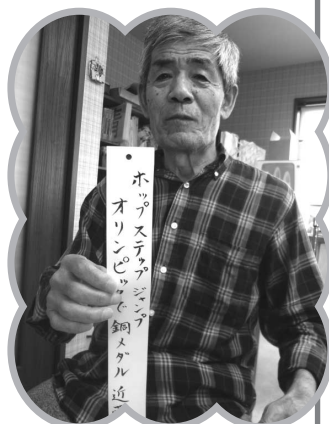 ホップステップジャンプ
オリンピックで銅メダル 近